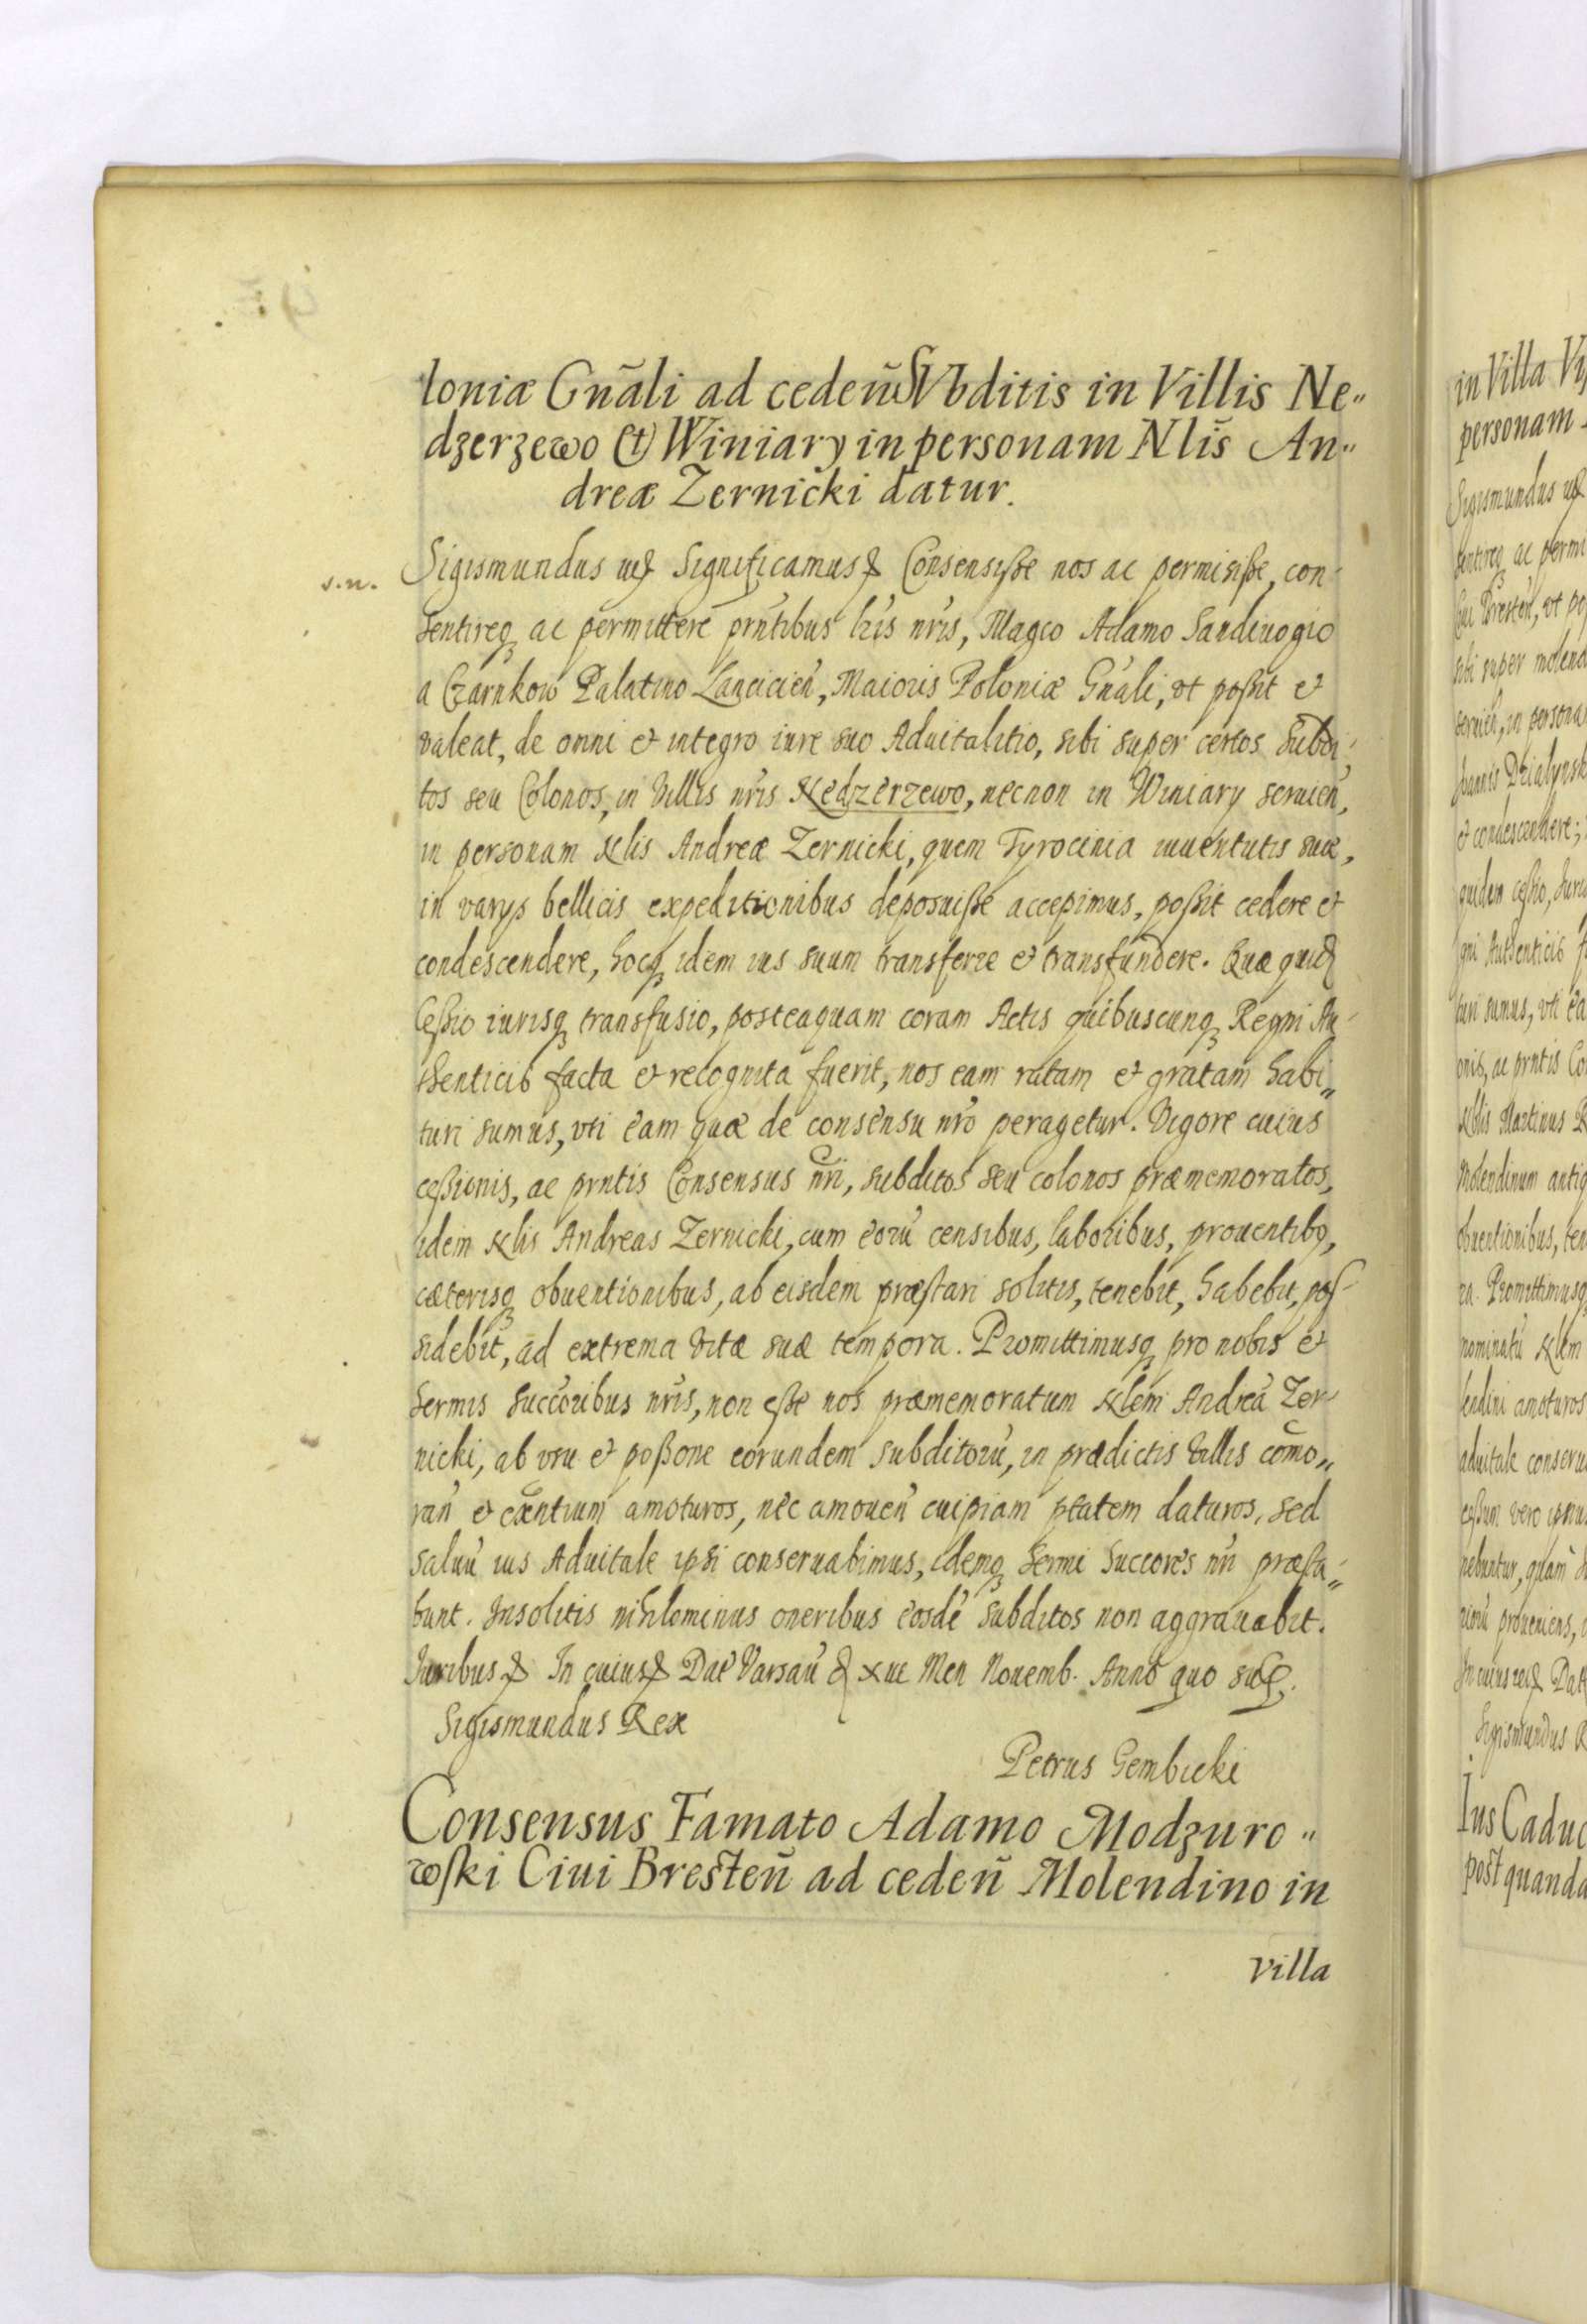 loniæ Gn̄ali ad cedeñ SVbditis in Villis Ne„
dzerzewo et Winiary in personam Nlis An„
dreæ Zernicki datur.
s.n.
Sigismundus iiiꝭ Significamusꝭ Consensisse nos ac permisisse, con-
sentireq; ac permittere prñtibus lris nris, Magco Adamo Sandiuogio
a Czarnkow Palatino Lancicieñ, Maioris Poloniæ Gñali, vt possit et
valeat, de omni et integro iure suo Aduitalitio, sibi super certos Subdi,
tos seu Colonos, in Villis nris Nedzerzewo, necnon in Winiary seruieñ,
in personam Nlis Andreæ Zernicki, quem Tyrocinia iuuentutis suæ,
in varys bellicis expeditionibus deposuisse accepimus, possit cedere et
condescendere, hocq; idem ius suum transferre et transfundere. Quæ quid
Cessio iurisq; transfusio, posteaquam coram Actis quibuscunq; Regni Au-
thenticis facta et recognita fuerit, nos eam ratam et gratam habi„
turi sumus, vti eam quæ de consensu nro peragetur. Vigore cuius
cessionis, ac prntis Consensus nri, subditos seu colonos præmemoratos,
idem Nlis Andreas Zernicki, cum eorū censibus, laboribus, prouentibq,
cæterisq; obuentionibus, ab eisdem præstari solitis, tenebit, habebit, pos-
sidebit, ad extrema vitæ suæ tempora. Promittimusq; pro nobis et
Sermis Succoribus nris, non esse nos præmemoratum Nlem Andreā Zer-
nicki, ab vsu et possone eorundem subditorū, in prædictis Villis cōmo„
rañ et exñtium amoturos, nec amoueñ cuipiam ptatem daturos, sed
saluū ius Aduitale ipsi conseruabimus, idemq; Sermi Succores nri præsta„
bunt. Insolitis nihlominus oneribus eosdē subditos non aggrauabit.
Iuribusꝭ In cuiusꝭ Dat Varsau d xvi Men Nouemb. Anno quo sup.
Sigismundus Rex
Petrus Gembicki
Consensus Famato Adamo Modzuro„
wski Ciui Bresteñ ad cedeñ Molendino in
villa
in Villa
personam
Sigismundus
sentireq; ac permi
Ciui Bresteñ, vt po
sibi super molend
seruieñ, in persona
Joannis Dzialynsk
et condescendere;
quidem cessio, Iuris
gni Authenticis
turi sumus, vti ea
onis, ac prntis Co
Nblis Martinus
Molendinum antiq
obuentionibus, ten
ra. Promittimusq;
nominatū Nlem
lendini amoturos
aduitale conserua
cessum vero ipsius
nebuntur, quam
proueniens,
In cuius reiꝭ Dat
Sigismundus R
Ius Caduc
post quanda